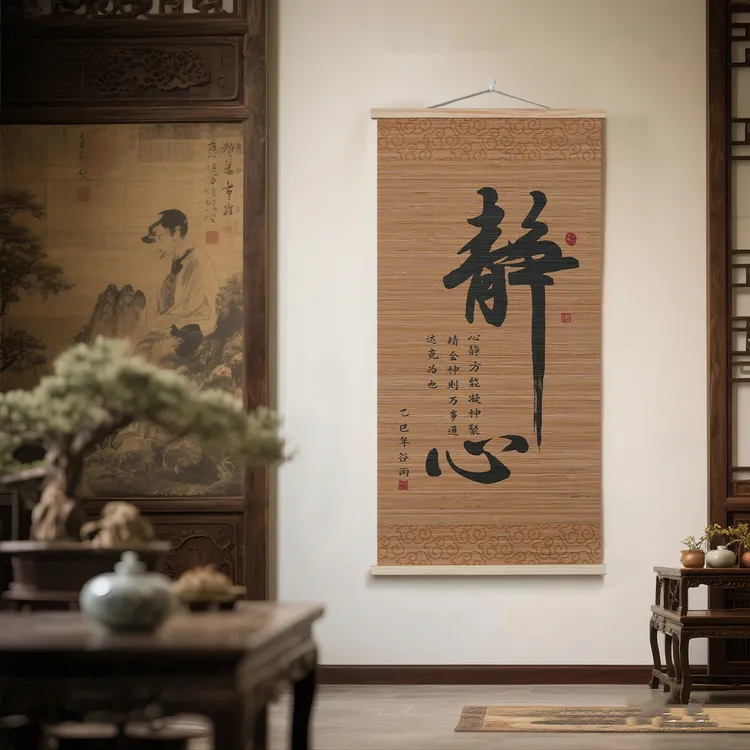 静心
心静方能凝神聚
精会神则万事通
达克为也
乙巳年谷雨